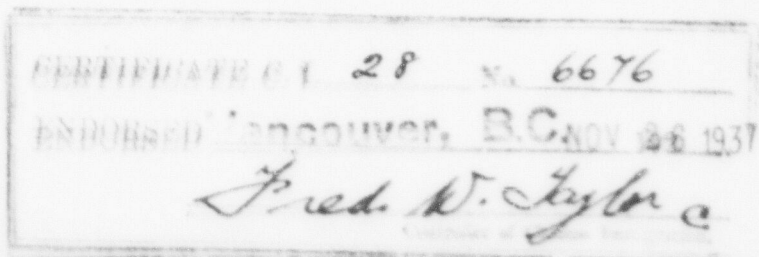 CERTIFICATE C.I. 28 No. 6676
ENDORSED Vancouver, B.C. NOV 26 1937
Fred. W. Taylor